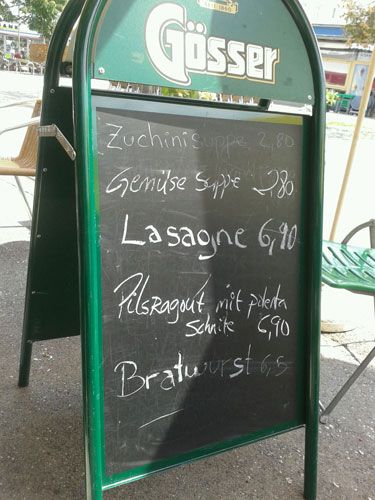 Gösser
Zuchinisuppe 2,80
Gemüse Suppe 2,80
Lasagne 6,90
Pilsragout mit polenta
Schnite 6,90
Bratwurst 6,5